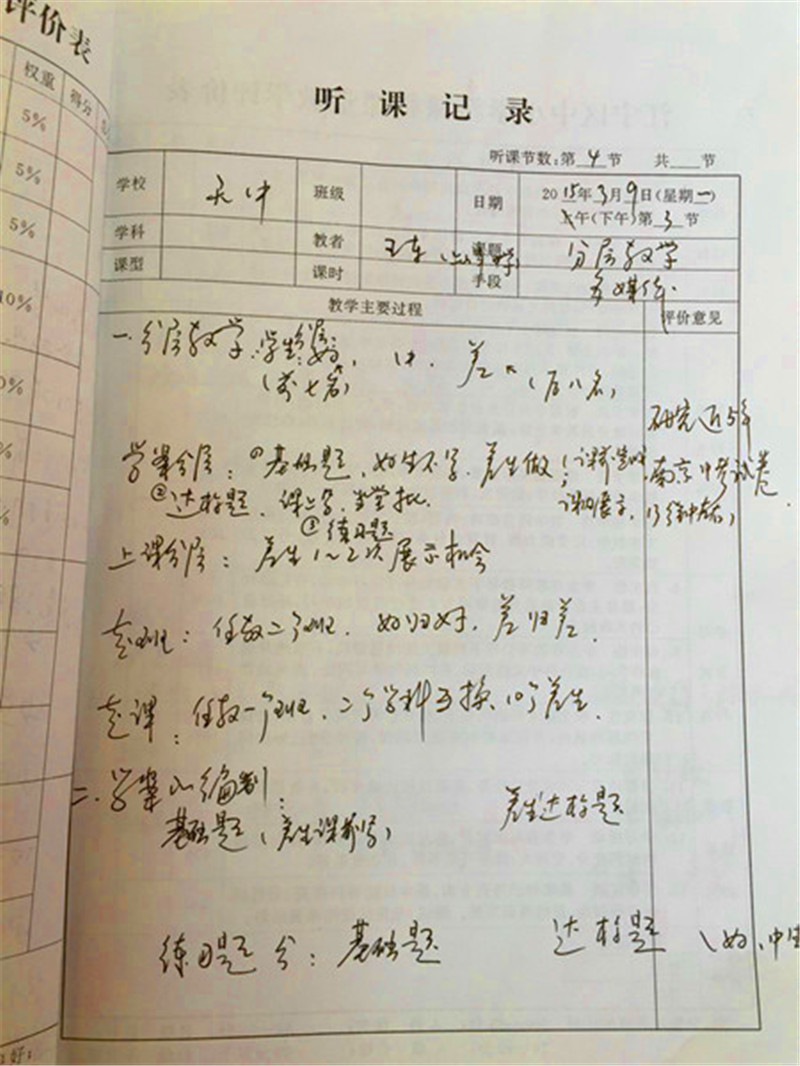 评价表
权重 得分
5%
5%
5%
10%
0%
%
%
%
%
听课记录
听课节数:第4节 共 节
学校 天中 班级 日期 2015年3月9日(星期一)
上午(下午)第3节
学科 教者 王东 课题 分层教学
课型 课时 手段 多媒体
教学主要过程 评价意见
一.分层教学.学生分层:好、中、差。
(前七名) (后八名)
研究近5年
学案分层:①基础题,好生不写,差生做(课前完成 南京中考试卷
②达标题,课上写,当堂批. 课内展示,15分钟左右)
③练习题
上课分层:差生1~2次展示机会
走班:任教二个班.好归好,差归差.
走课:任教一个班,二个学科互换,10个差生.
二.学案的编制:
基础题(差生课前写) 差生达标题
练习题分:基础题 达标题(好、中生
好: